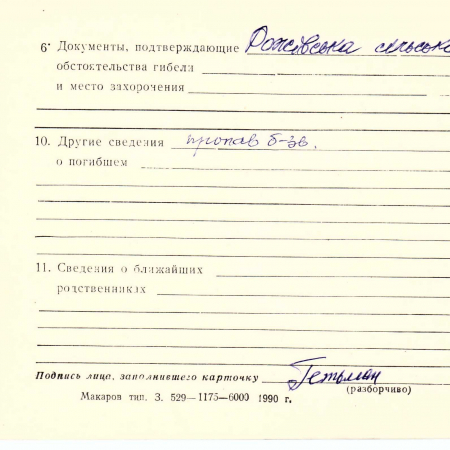 6• Документы, подтверждающие Рожівська сільська
обстоятельства гибели
и место захоронения
10. Другие сведения пропав б-зв.
о погибшем
11. Сведения о ближайших
родственниках
Подпись лица, заполнившего карточку Гетьман
(разборчиво)
Макаров тип. З. 529—1175—6000 1990 г.